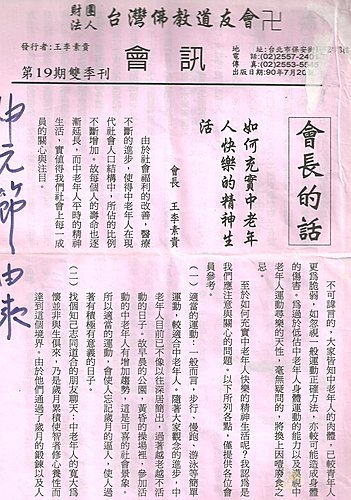 財團
法人
台灣佛教道友會卍
發行者:王李素貴
會訊
地 址:台北市保安街
電 話:(02)2557-240
傳 真:(02)2553-5845
出版日期:90年7月20日
第19期雙季刊
中元節由來
會長的話
如何充實中老年
人快樂的精神生
活
會長 王李素貴
由於社會福利的改善,醫療
不斷的進步,使得中老年在現
代社會人口結構中,所佔的比例
不斷增加。故每個人的壽命也逐
漸延長,而中老年人平時的精神
生活,實值得我們社會上每一成
員的關心與注目。
不可諱言的,大家皆知中老年人的肉體,已較青年人
更為脆弱,如忽視一般運動正確方法,亦較可能造成身體
的傷害。為過於低估中老年人身體運動的能力以及漠視中
老年人運動尋樂的天性,毫無疑問的,將換上因噎廢食之
忌。
至於如何充實中老年人快樂的精神生活呢?我認為是
我們應注意與關心的問題。以下所列各點,僅提供各位會
員參考。
(一)適當的運動:一般而言,步行、慢跑、游泳等簡單
運動,較適合中老年人,隨著大家觀念的進步,中
老年人目前已不像以往深居簡出,過著越老越不活
動的日子。故早晨的公園、黃昏的操場裡,參加活
動的中老年人有增加趨勢,這是可喜的社會景象。
所以適當的運動,會使人忘記歲月的逼人,使人過
著有積極有意義的日子。
(二)找個知己志同道合的朋友聊天:中老年人的寬大為
懷並非與生俱來,乃是歲月累積使智者修心養性而
達到這個境界。由於他們通過了歲月的鍛鍊以及人